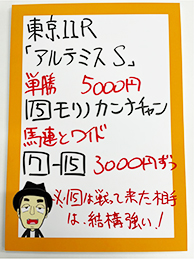 東京11R
「アルテミスS」
単勝 5000円
15 モリノカンナチャン
馬連とワイド
7-15 3000円ずつ
※15は戦って来た相手
は、結構強い!